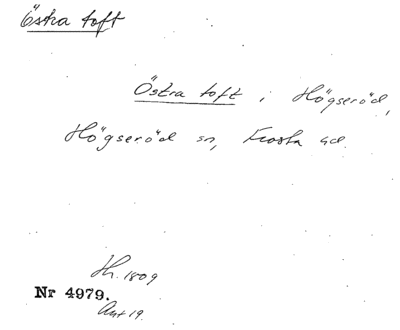 Östra toft
Östra toft i Högseröd,
Högseröd sn, Frosta hd.
Sk. 1809
Nr 4979.
Ant 19.